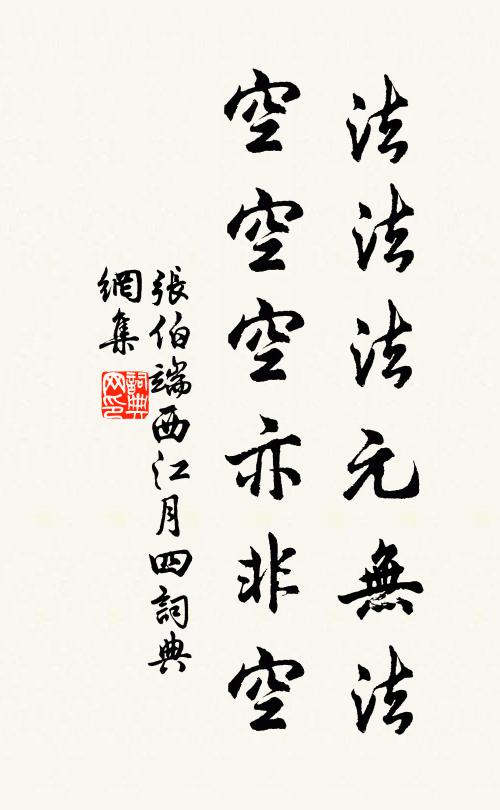 法法法元無法
空空空亦非空
張伯端西江月四詞典
網集
詞典
网印